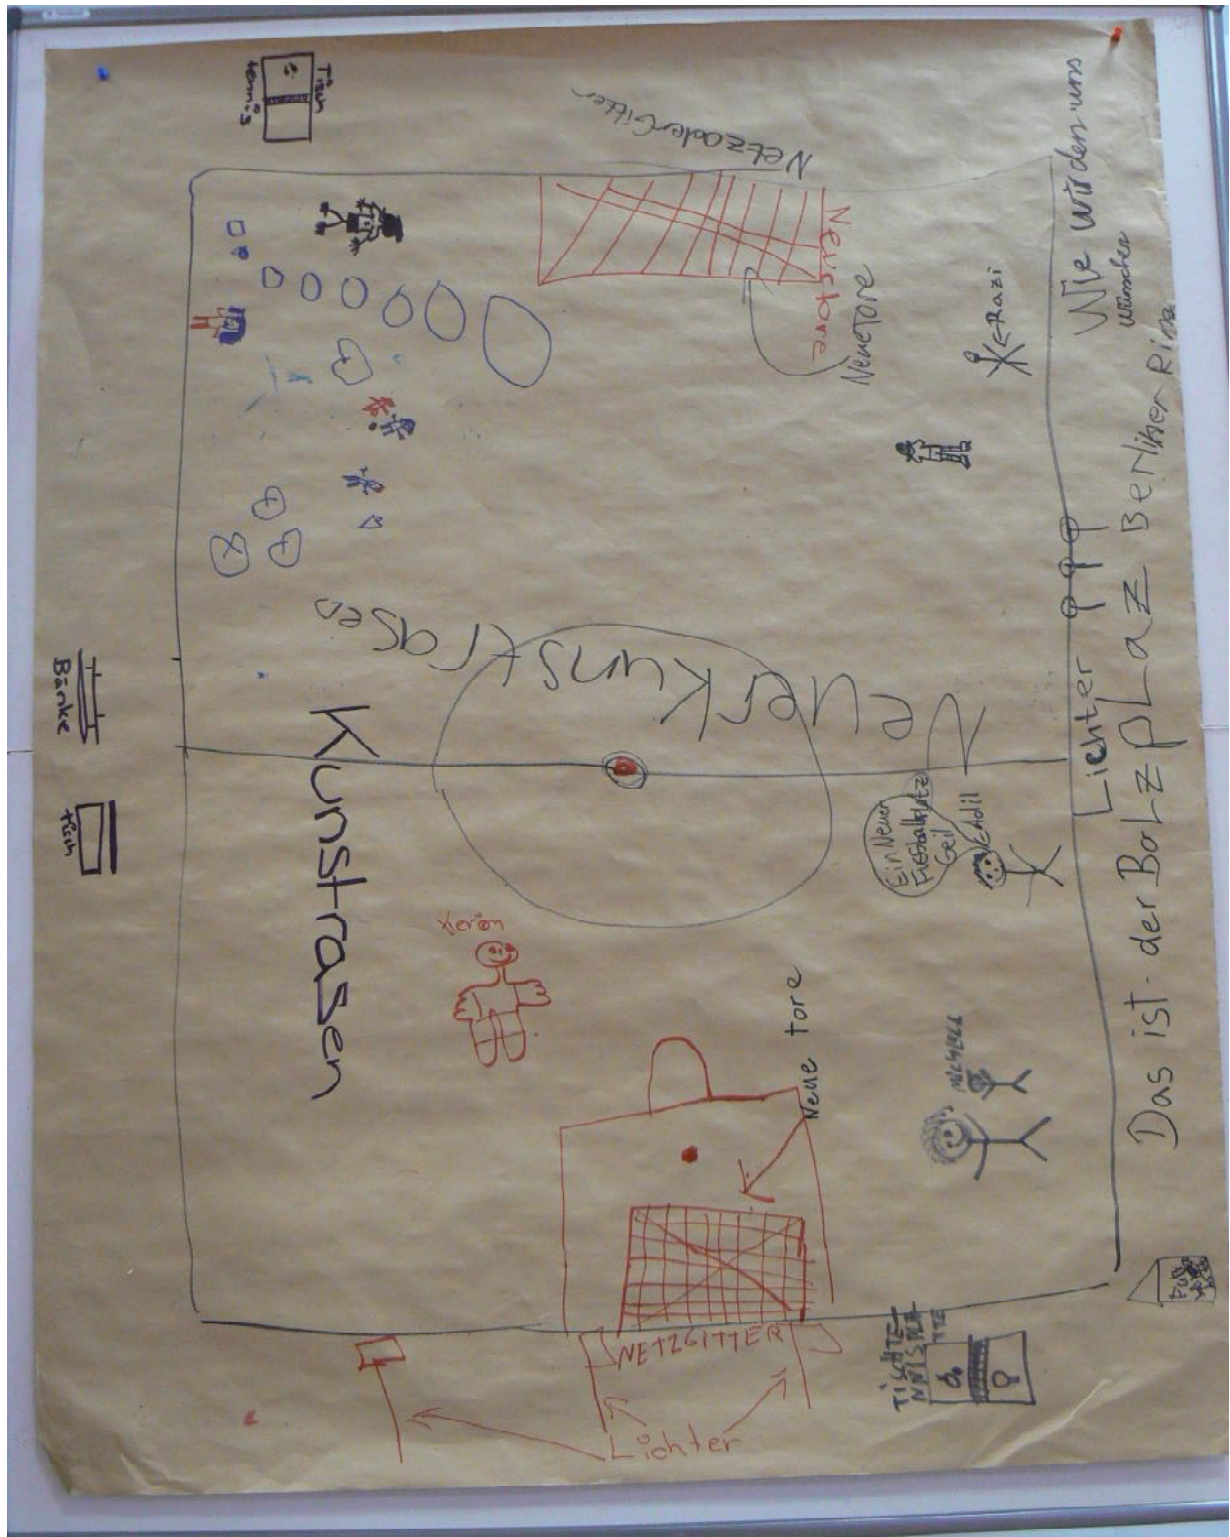 Das ist der BoLzpLaz Berliner Ring
Wie würden uns
wünschen
Lichter
Netz oder Gitter
Neuetore
Neuetore
Razi
Tisch
tennis
Neuer Kunstrasen
Kunstrasen
Bänke
tisch
Ein Neuer
Fussballplatz
Geil
Adil
Neue tore
NETZGITTER
Lichter
TISCHTE
NNISPLA
TTE